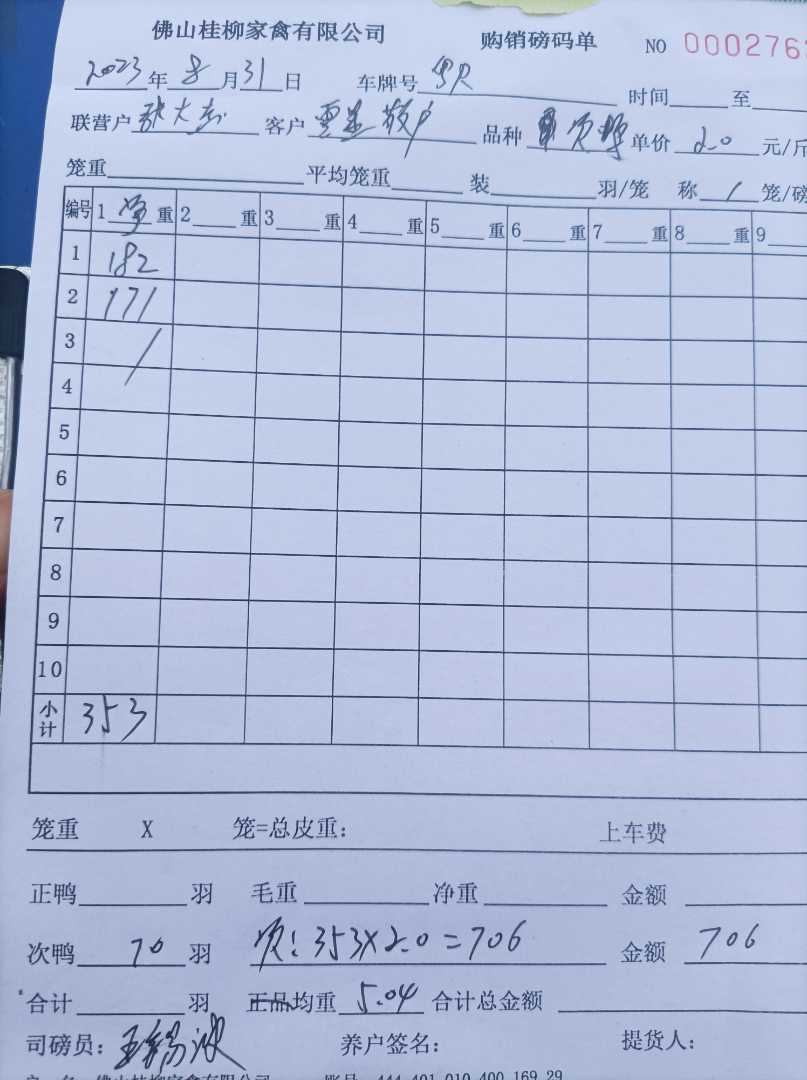 佛山桂柳家禽有限公司 购销磅码单 NO 000276
2023年8月31日 车牌号 时间 至
联营户 张大 客户 散户 品种 次 单价 2.0 元/斤
笼重 平均笼重 装 羽/笼 称 1 笼/磅
编号 1 净 重 2 重 3 重 4 重 5 重 6 重 7 重 8 重 9
1 182
2 171
3 /
4
5
6
7
8
9
10
小计 353
笼重 X 笼=总皮重: 上车费
正鸭 羽 毛重 净重 金额
次鸭 70 羽 次: 353X2.0=706 金额 706
合计 羽 正品均重 5.04 合计总金额
司磅员: 王 波 养户签名: 提货人:
佛山桂柳家禽有限公司